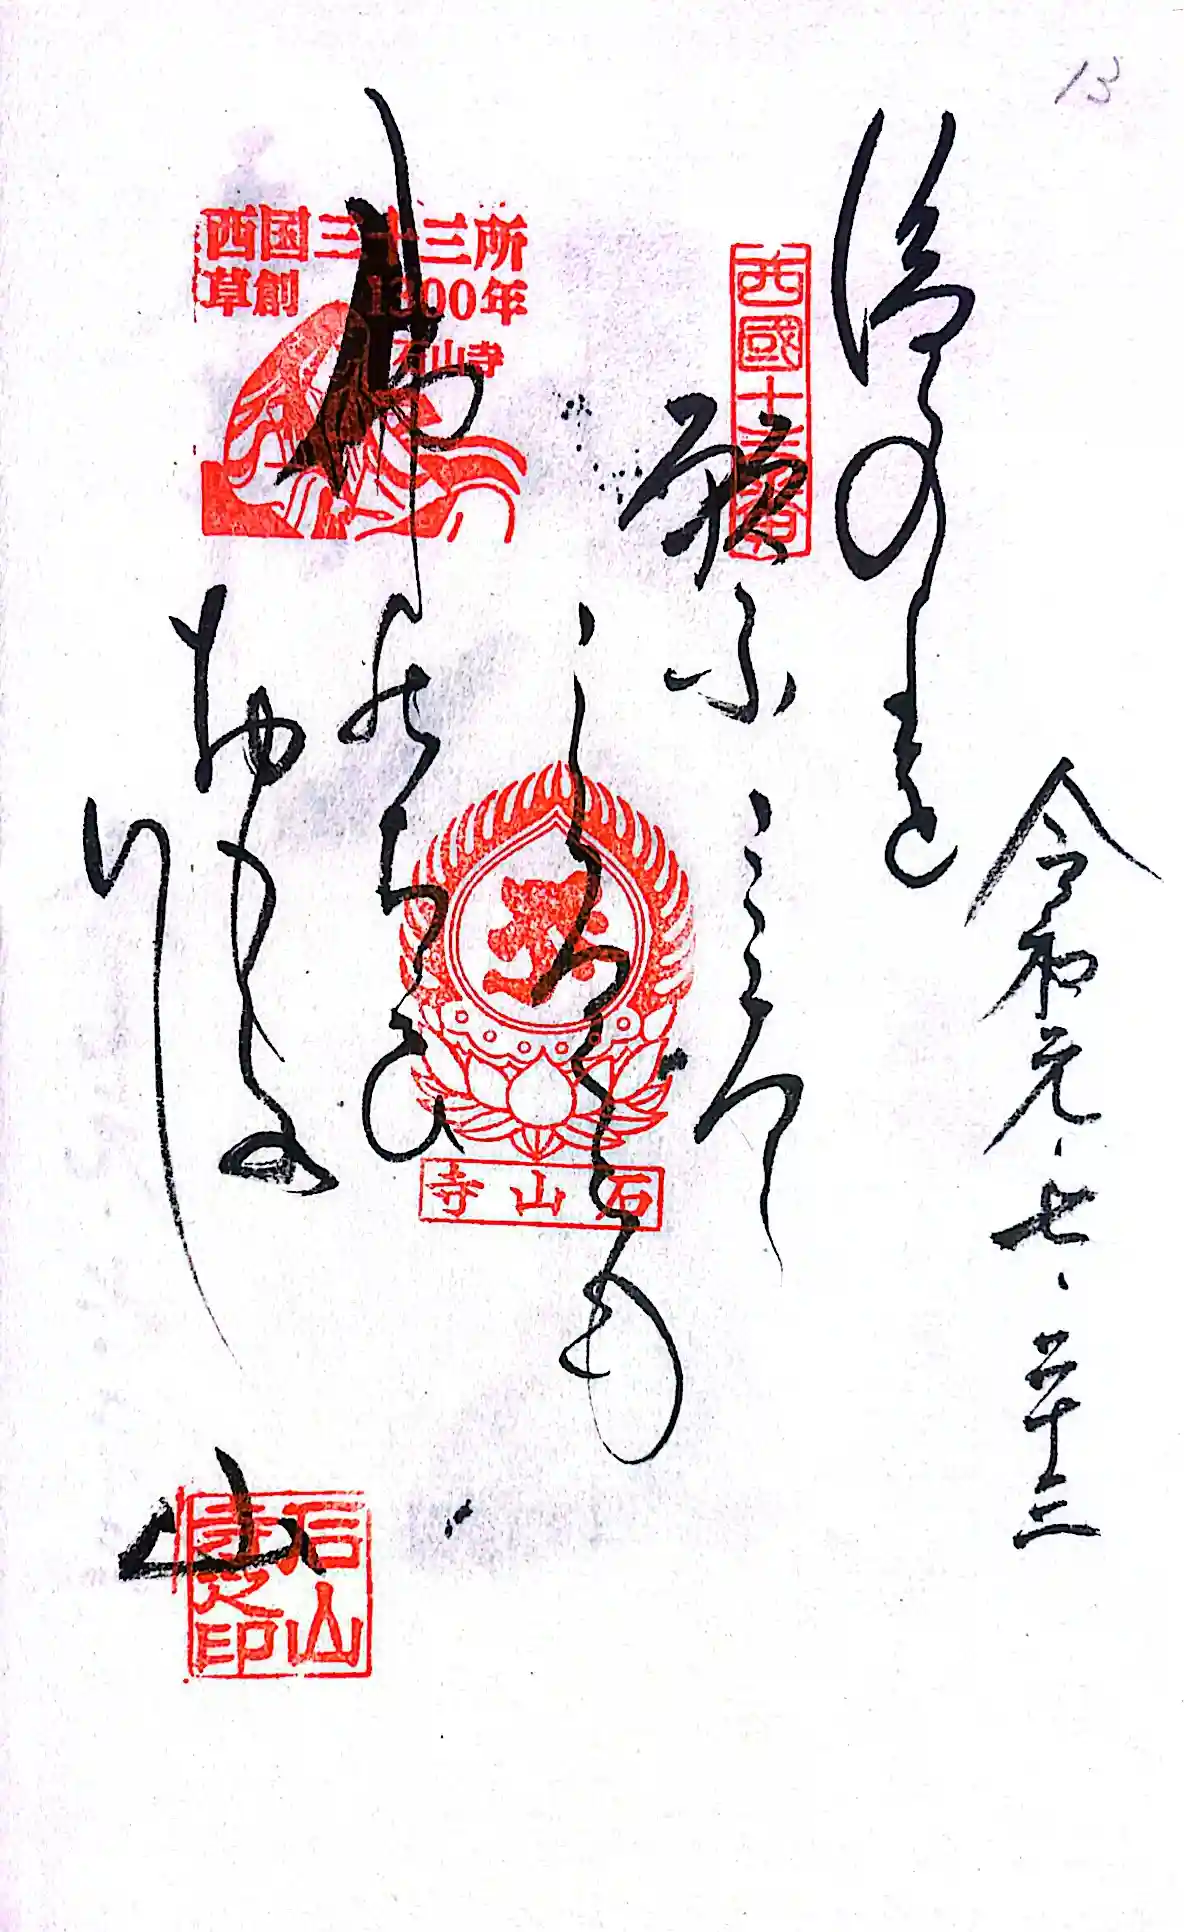 13
令和元、七、二十三
後の世を
西國十三番
願ふ
かろくとも
佛のちかひ
おもき
いし
山
西国三十三所
草創 1300年
石山寺
石山寺
石山
寺之印